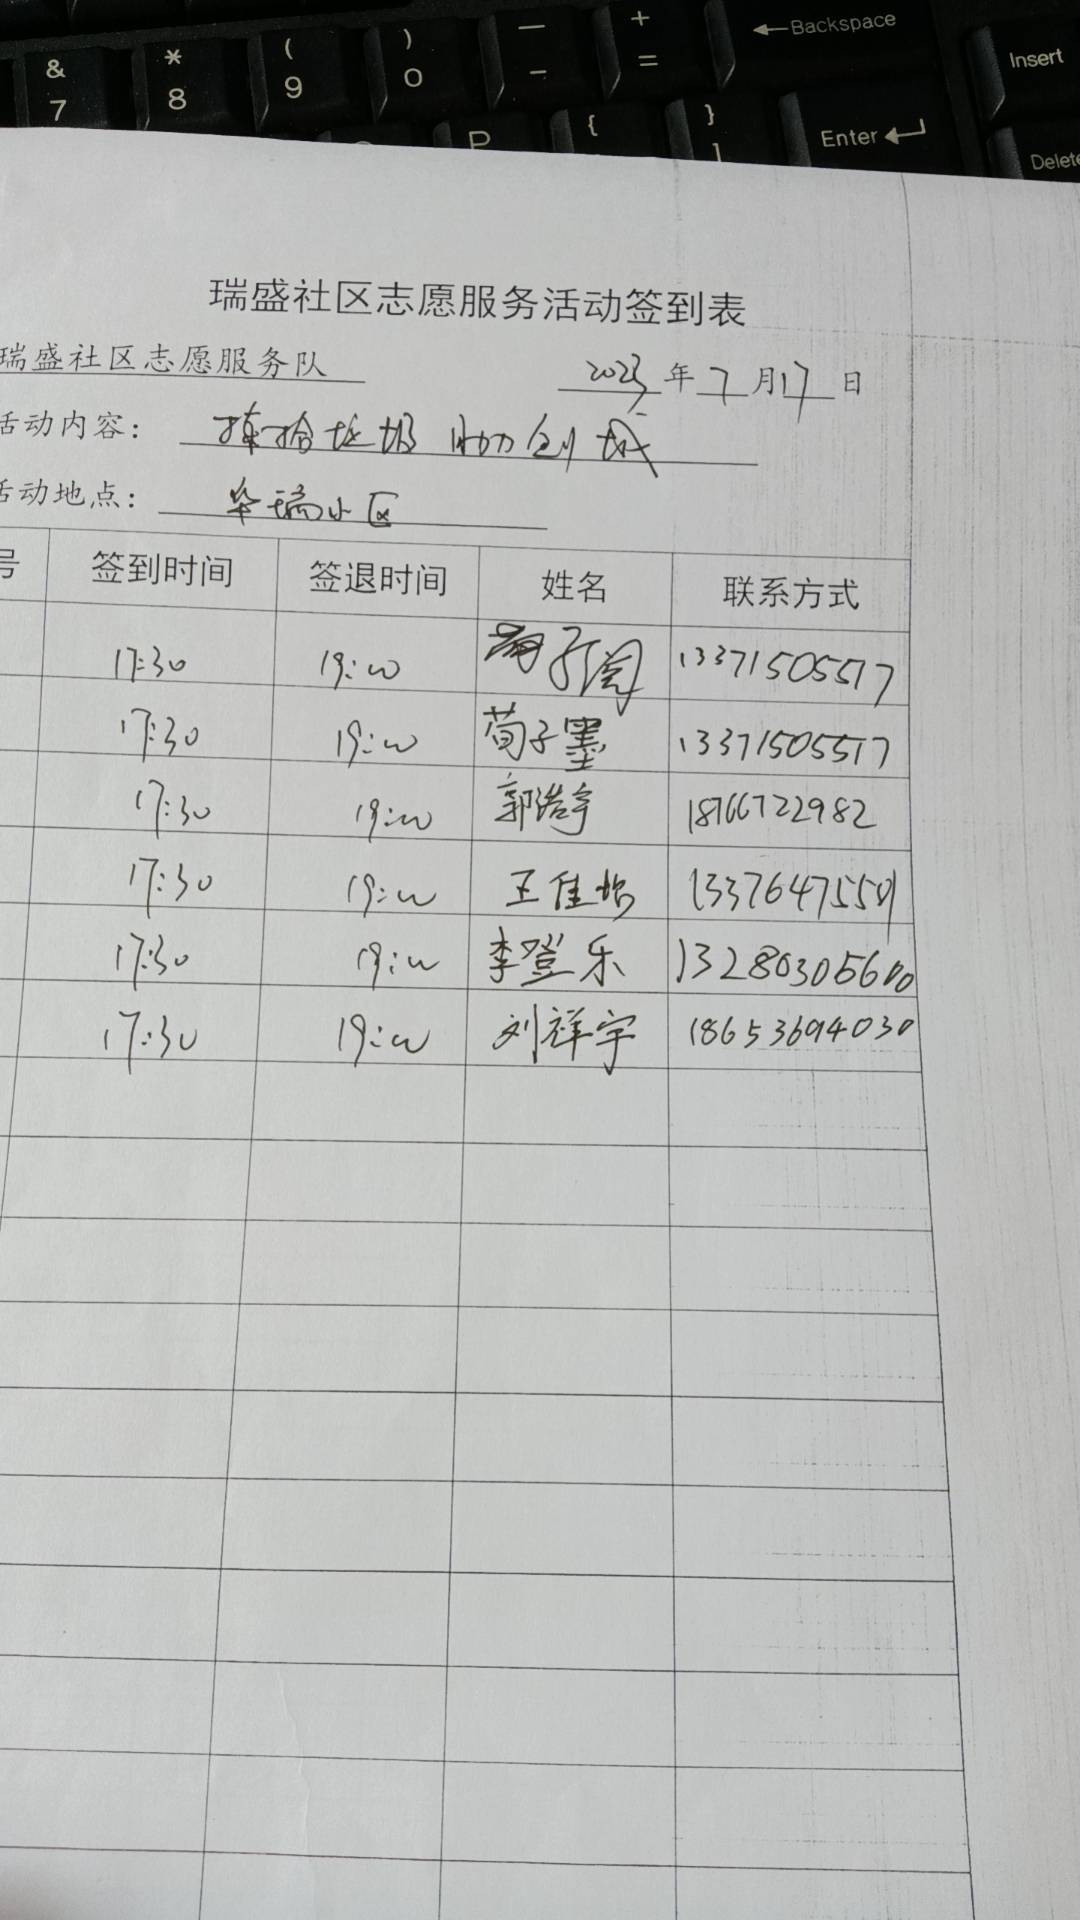 & * ( ) — + ←Backspace
7 8 9 0 - = Insert
P { } Enter
] Delete
瑞盛社区志愿服务活动签到表
瑞盛社区志愿服务队 2023年7月17日
活动内容: 捡拾垃圾 助创城
活动地点: 华瑞小区
号 签到时间 签退时间 姓名 联系方式
17:30 19:00 子 13371505517
17:30 19:00 荀子墨 13371505517
17:30 19:00 郭浩宇 18766722982
17:30 19:00 王佳怡 13376475501
17:30 19:00 李登乐 13280305600
17:30 19:00 刘祥宇 18653694030